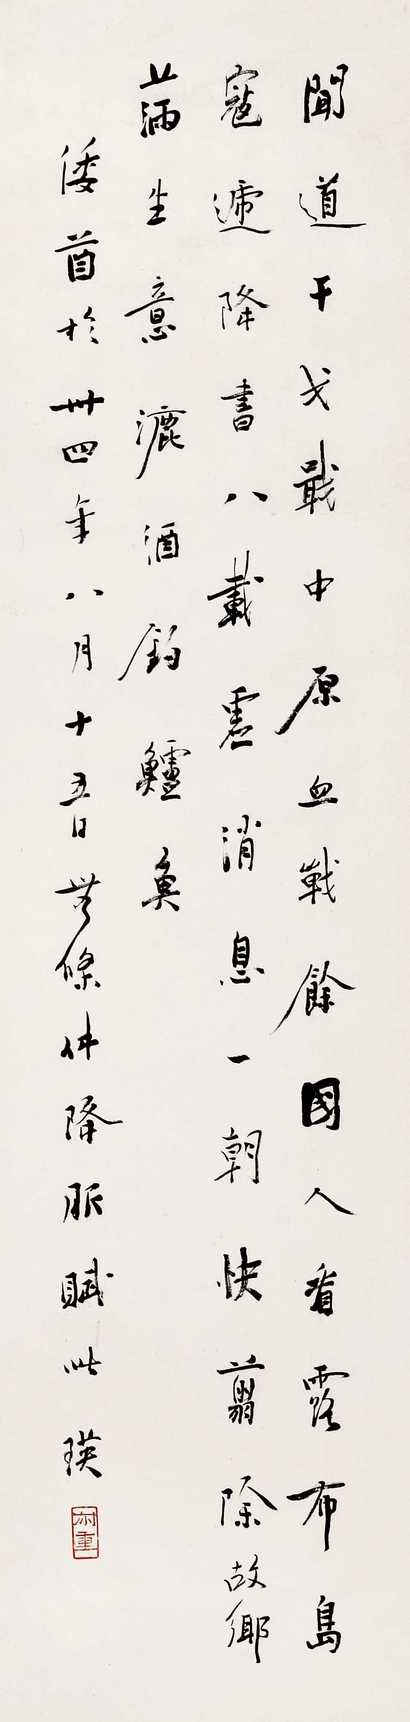 聞道干戈戢中原血戰餘國人看露布島
寇遞降書八載虛消息一朝快翦除故鄉
滿生意漉酒釣鱸魚
倭酋於卅四年八月十五日無條件降服賦此瑛